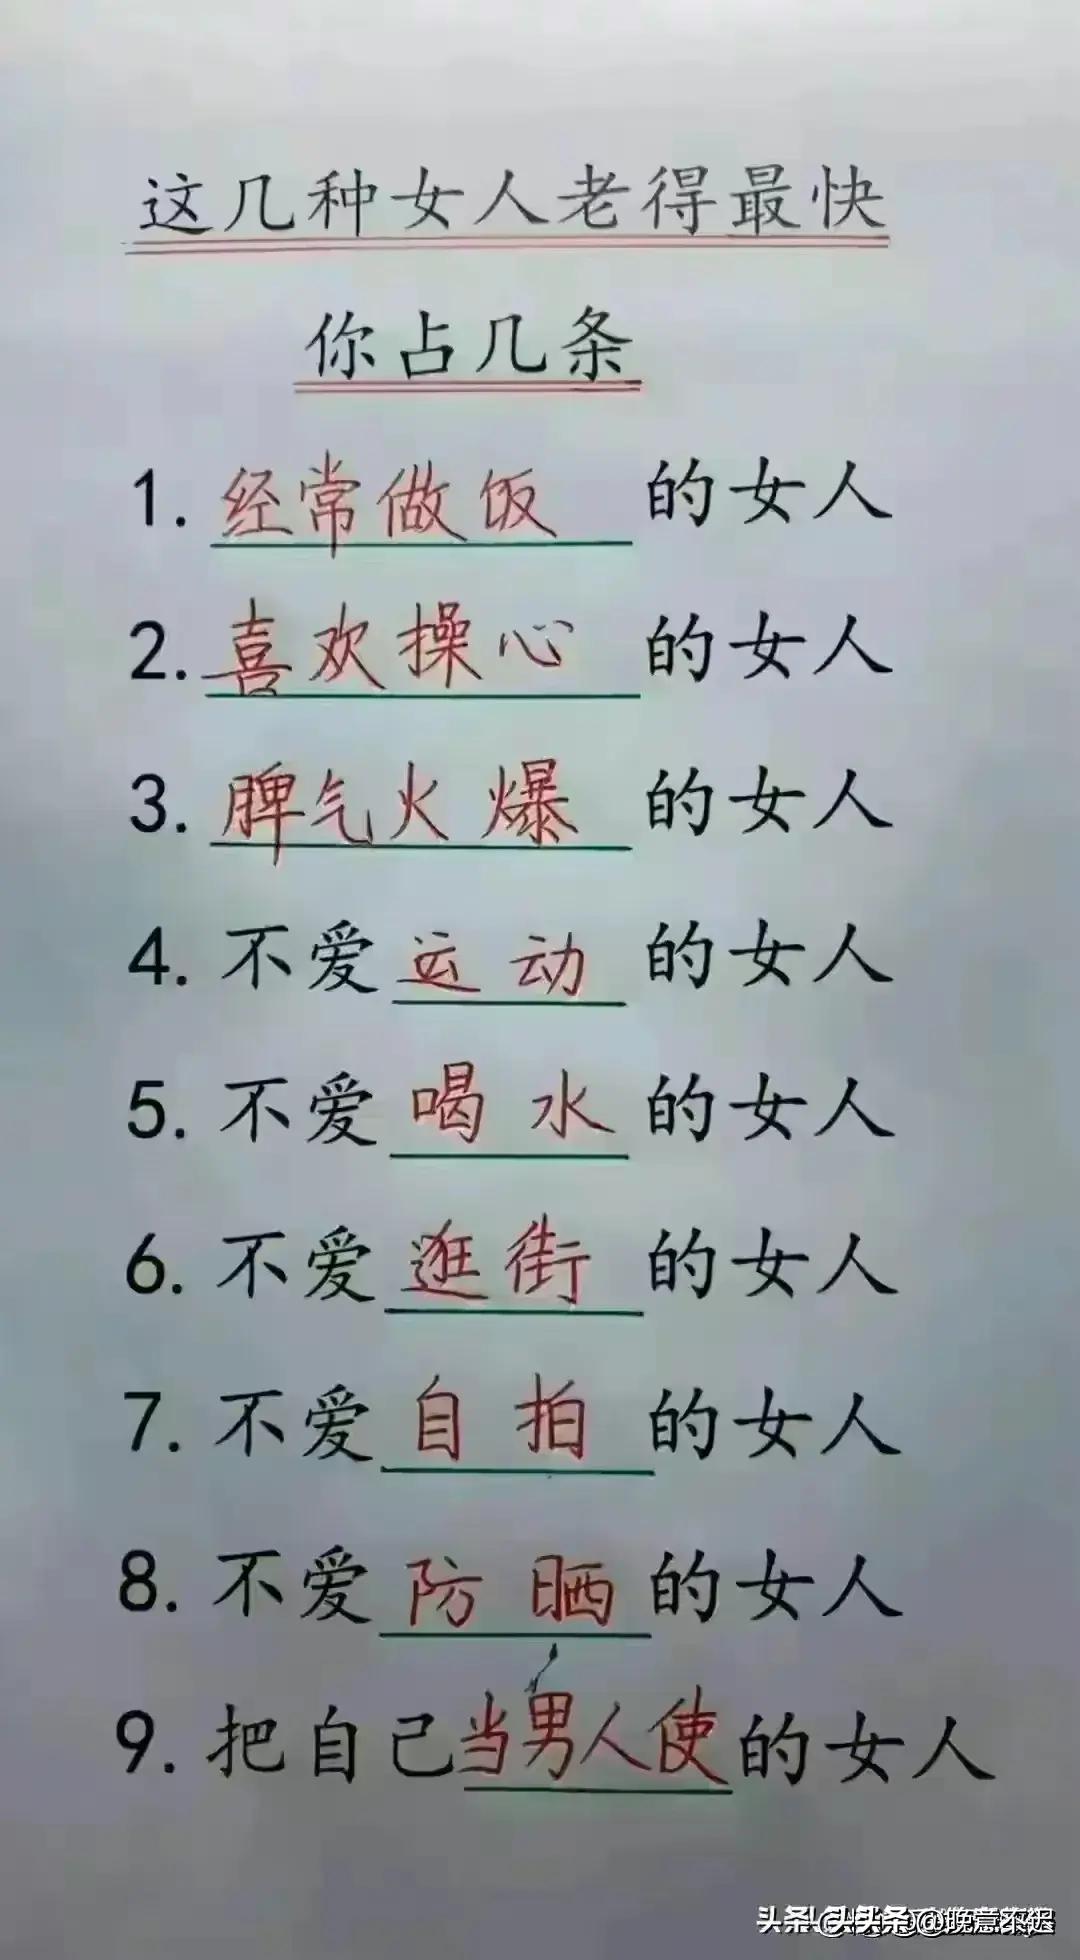 这几种女人老得最快
你占几条
1. 经常做饭 的女人
2. 喜欢操心 的女人
3. 脾气火爆 的女人
4. 不爱 运动 的女人
5. 不爱 喝水 的女人
6. 不爱 逛街 的女人
7. 不爱 自拍 的女人
8. 不爱 防晒 的女人
9. 把自己当男人使的女人
头条 @晚意不迟